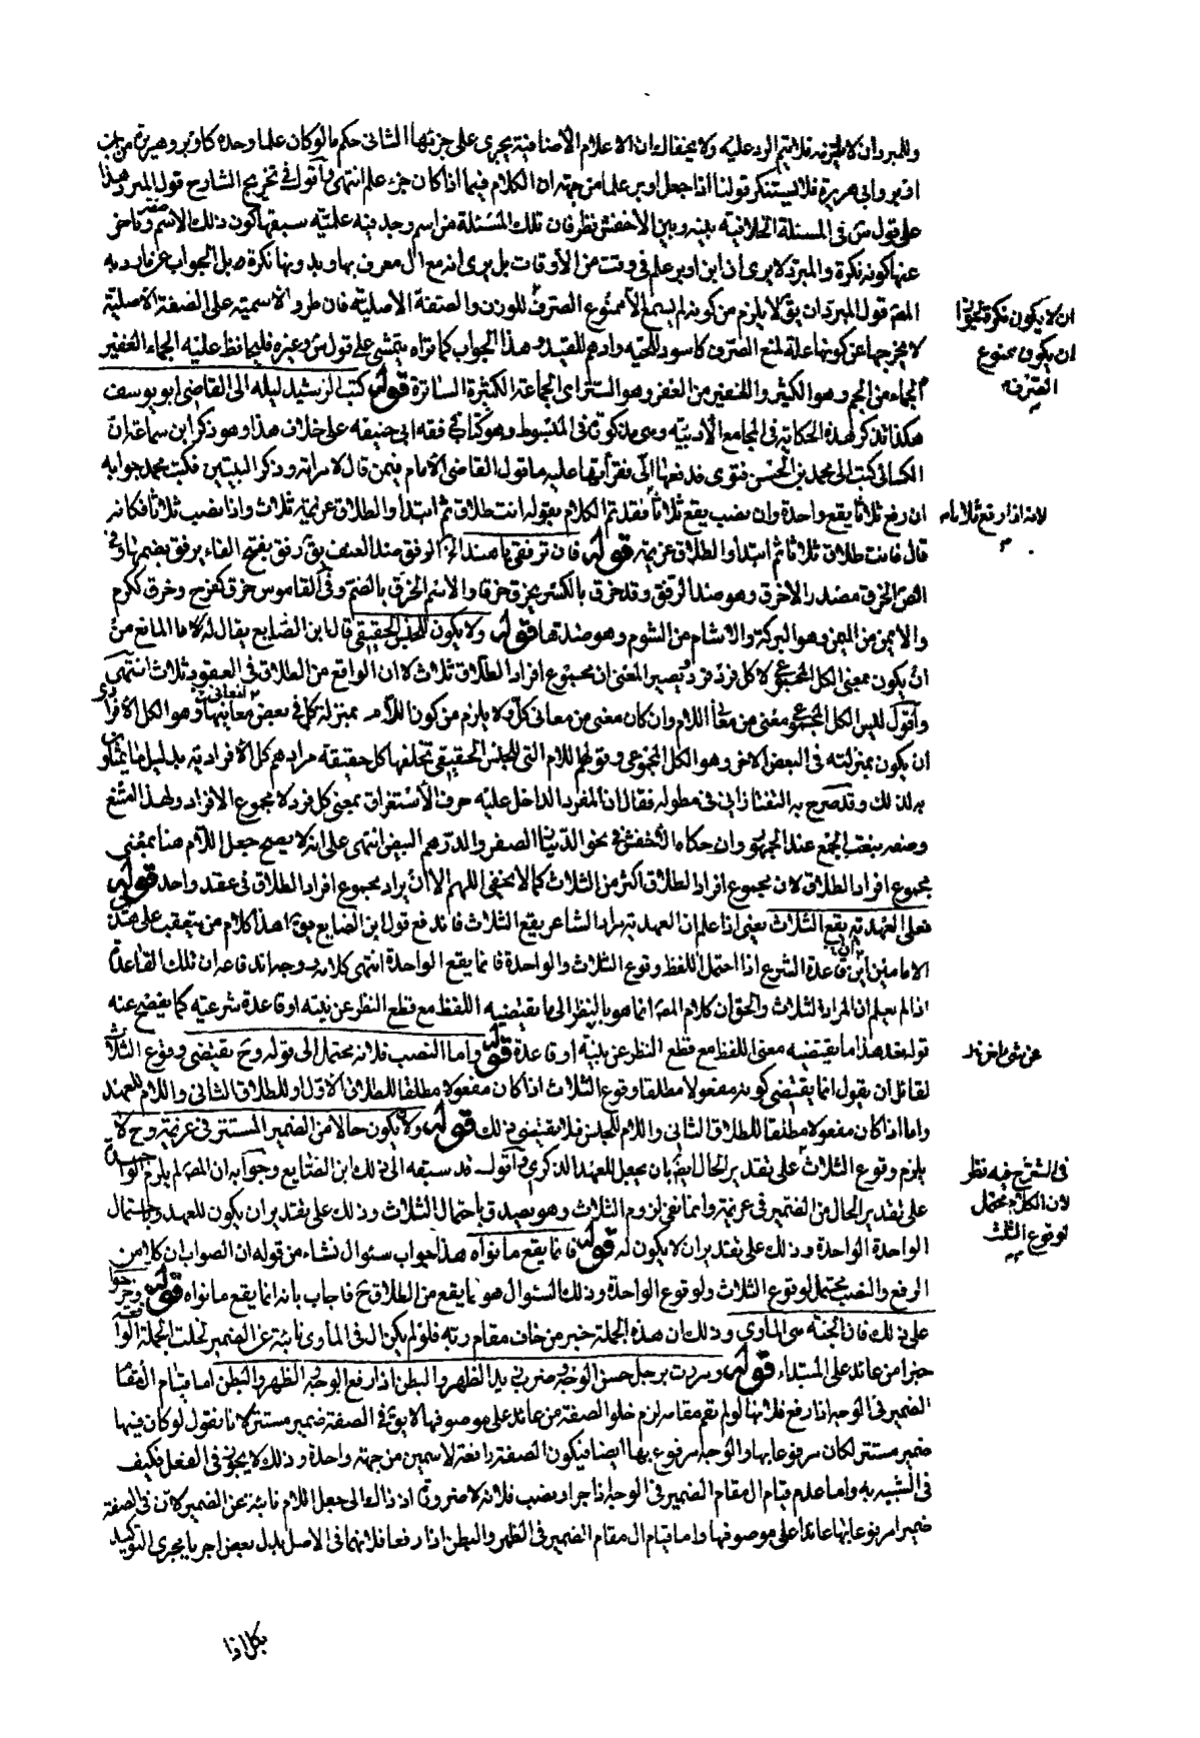 وللمبرد ان لا يلتزمه فلا يتم الرد عليه ولا يخفاك ان الاعلام الاضافية يجرى على جزئها الثانى حكم ما لو كان علما وحده كاوبر وهريرة من
اوبر وابى هريرة فلا يستنكر قولنا اذا جعل اوبر علما من جهة ان الكلام فيما اذا كان جزء علم انتهى واقول فى تخريج الشارح قول المبرد هذا
على قول س فى المسئلة الخلافية بينه وبين الاخفش نظر فان تلك المسئلة من اسم وجد فيه علمية سبقها كون ذلك الاسم صفة وتاخر
عنها كونه نكرة والمبرد لا يرى اذ ابن اوبر علم فى وقت من الاوقات بل يرى انه مع ال معرف بها وبدونها نكرة
المص قول المبرد ان يق لا يلزم من كونه لم يسمع الا ممنوع الصرف للوزن والصفة الاصلية فان طرو الاسمية على الصفة الاصلية
ان لا يكون نكرة لجواز
ان يكون ممنوع
الصرف
لا يخرجها عن كونها علة لمنع الصرف كاسود للحية وادهم للقيد وهذا الجواب كما تراه يتمشى على قول س وغيره فليحافظ عليه الجماء الغفير
الجماء من الجم وهو الكثير والغفير من الغفر وهو الستر اى الجماعة الكثيرة الساترة قوله كتب الرشيد ليلة الى القاضى ابو يوسف
هكذا تذكر هذه الحكاية فى المجامع الادبية وهى مذكورة فى المبسوط وهو كتاب فى فقه ابى حنيفة على خلاف هذا وهو ذكر ابن سماعة ان
الكسائى كتب الى محمد بن الحسن فتوى فدفعها الىّ فقرأتها عليه ما قول القاضى الامام فيمن قال لامراته وذكر البيتين فكتب محمد جوابه
ان رفع ثلاثا يقع واحدة وان نصب يقع ثلاثا فقد تم الكلام بقوله انت طلاق ثم ابتدأ والطلاق عزيمة ثلاث واذا نصب ثلاثا فكانه
لانه اذا رفع ثلاثا
قال فانت طلاق ثلاثا ثم ابتدأ والطلاق عزيمة قوله فان ترفقى يا هند الخ الرفق ضد العنف يق رفق بفتح الفاء يرفق بضمها وفى
الص الخرق مصدر الاخرق وهو ضد الرفق وقد خرق بالكسر يخرق خرقا والاسم الخرق بالضم وفى القاموس خرق كفرح وخرق ككرم
والايمن من اليمن وهو البركة والاشام من الشوم وهو ضدها قوله ولا يكون للجنس الحقيقى قال ابن الضايع يقال له لا ما المانع من
ان يكون بمعنى الكل المجموعى لا كل فرد فرد ويصير المعنى ان مجموع افراد الطلاق ثلاث لان الواقع من الطلاق فى العقود ثلاث انتهى
واقول ليس الكل المجموعى معنى من معانى اللام وان كان معنى من معانى كل ولا يلزم من كون اللام بمنزلة كل فى بعض معانيها وهو الكل الافرادى
ان يكون بمنزلته فى البعض الاخر وهو الكل المجموعى وقولهم اللام التى للجنس الحقيقى تخلفها كل حقيقة مرادهم كل الافرادية بدليل ما يمثلون
به لذلك وقد صرح به التفتازانى فى مطوله فقال ان المفرد الداخل عليه حرف الاستغراق بمعنى كل فرد لا مجموع الافراد ولهذا امتنع
وصفه بنعت الجمع عند الجمهور وان حكاه الاخفش فى نحو الدينار الصفر والدرهم البيض انتهى على انه لا يصح جعل اللام هنا بمعنى
مجموع افراد الطلاق لان مجموع افراد الطلاق اكثر من الثلاث كما لا يخفى اللهم الا ان يراد مجموع افراد الطلاق فى عقد واحد قوله
فعلى العهدية يقع الثلاث يعنى اذا علم ان العهدية مراد الشاعر يقع الثلاث فاندفع قول ابن الضايع يق هذا كلام من يتعقب على هذين
الامامين اين قاعدة الشرع اذا احتمل اللفظ وقوع الثلاث والواحدة فانما يقع الواحدة انتهى كلامه ووجه اندفاعه ان تلك القاعدة
اذا لم يعلم ان المراد الثلاث والحق ان كلام المص انما هو بالنظر الى ما يقتضيه اللفظ مع قطع النظر عن نيته او قاعدة شرعية كما يفصح عنه
قوله بعد هذا ما يقتضيه معنى اللفظ مع قطع النظر عن نيته او قاعدة قوله واما النصب فلانه يحتمل الى قوله وح يقتضى وقوع الثلاث
عن شئ اخر
لقائل ان يقول انما يقتضى كونه مفعولا مطلقا وقوع الثلاث اذا كان مفعولا مطلقا للطلاق الاول او للطلاق الثانى واللام للعهد
واما اذا كان مفعولا مطلقا للطلاق الثانى واللام للجنس فلا يقتضى ذلك قوله ولا يكون حالا من الضمير المستتر فى عزيمة وح لا
يلزم وقوع الثلاث على تقدير الحال ايضا بان يجعل للعهد الذكرى اقول قد سبقه الى ذلك ابن الضايع وجوابه ان المص لم يلزم الواحدة
فى الشرح فيه نظر
لان الكلام محتمل
لوقوع الثلث
على تقدير الحال من الضمير فى عزيمة وانما نفى لزوم الثلاث وهو يصدق باحتمال الثلاث وذلك على تقدير ان يكون للعهد وباحتمال
الواحدة الواحدة وذلك على تقدير ان لا يكون له قوله فانما يقع ما نواه هذا جواب سئوال نشاء من قوله ان الصواب ان كلا من
الرفع والنصب محتمل لوقوع الثلاث ولوقوع الواحدة وذلك السئوال هو ما يقع من الطلاق ح فاجاب بانه انما يقع ما نواه قوله
على ذلك فان الجنة هى الماوى وذلك ان هذه الجملة خبر من خاف مقام ربه فلو لم يكن ال فى الماوى نائبة عن الضمير لخلت الجملة الواقعة
خبرا من عائد على المبتداء قوله ومررت برجل حسن الوجه وضرب زيد الظهر والبطن اذا رفع الوجه والظهر والبطن اما قيام ال مقام
الضمير فى الوجه اذا رفع فلانها لو لم تقم مقامه لزم خلو الصفة من عائد على موصوفها لا يق فى الصفة ضمير مستتر لانا نقول لو كان فيها
ضمير مستتر لكان مرفوعا بها والوجه مرفوع بها ايضا فيكون الصفة رافعة لاسمين من جهة واحدة وذلك لا يجوز فى الفعل فكيف
فى الشبيه به واما عدم قيام ال مقام الضمير فى الوجه اذا جر او نصب فلانه لا ضرورة اذ ذاك الى جعل اللام نائبة عن الضمير لان فى الصفة
ضميرا مرفوعا بها عائدا على موصوفها واما قيام ال مقام الضمير فى الظهر والبطن اذا رفعا فلانهما فى الاصل بدل بعض اجريا مجرى التوكيد
بكل اذا